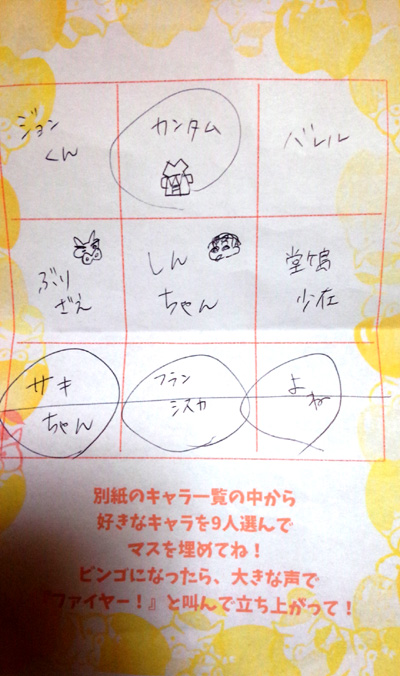 ジョン
くん
カンタム
バレル
ぶり
ざえ
しん
ちゃん
堂ヶ島
少佐
サキ
ちゃん
フラン
シスカ
よね
別紙のキャラ一覧の中から
好きなキャラを9人選んで
マスを埋めてね！
ビンゴになったら、大きな声で
『ファイヤー！』と叫んで立ち上がって！